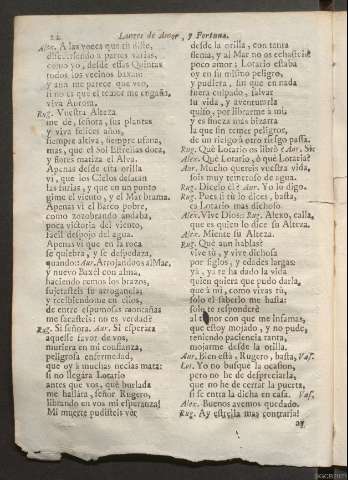 22 Lances de Amor, y Fortuna.
Alex. A las voces que tu diste,
discurriendo à partes varias,
como yo, desde essas Quintas
todos los vecinos baxan:
y aun me parece que veo,
si no es que el temor me engaña,
viva Aurora.
Rug. Vuestra Alteza
me dè, señora, sus plantas
y viva felices años,
siempre altiva, siempre ufana,
mas, que el Sol Estrellas dora,
y flores matiza el Alva.
Apenas desde esta orilla
vi, que los Cielos desatan
las furias, y que en un punto
gime el viento, y el Mar brama.
Apenas vi el Barco pobre,
como zozobrando andaba,
poca victoria del viento,
facil despojo del agua.
Apenas vi que en la roca
se quiebra, y se desquadaza,
quando: Aur. Arrojandoos al Mar,
y nuevo Baxèl con alma,
haciendo remos los brazos,
sujetasteis su arrogancia,
y recibiendome en ellos,
de entre espumosas montañas
me sacasteis: no es verdad?
Rug. Si señora. Aur. Si esperara
aquesse favor de vos,
muriera en mi confianza,
peligrosa enfermedad,
que oy à muchas necias mata:
si no llegàra Lotario
antes que vos, què burlada
me hallàra, señor Rugero,
librando en vos mi esperanza!
Mi muerte pudisteis ver
desde la orilla, con tanta
flema, y al Mar no os echasteis?
poco amor; Lotario estaba
oy en su mismo peligro,
y pudiera, sin que en nada
fuera culpado, salvar
su vida, y aventurarla
quiso, por librarme à mi;
y es fineza mas bizarra
la que sin temer peligros,
de un riesgo à otro riesgo passa.
Rug. Què Lotario os librò? Aur. Si.
Alex. Què Lotario, ò què Lotaria?
Aur. Mucho quereis vuestra vida,
sois muy temeroso de agua.
Rug. Dicelo èl? Aur. Yo lo digo.
Rug. Pues si tu lo dices, basta,
es Lotario mas dichoso.
Alex. Vive Dios: Rug. Alexo, calla,
que es quien lo dice su Alteza.
Alex. Miente su Alteza.
Rug. Què aun hablas?
vive tù, y vive dichosa
por siglos, y edades largas:
yà, ya te ha dado la vida
quien quiera que pudo darla,
que à mi, como vivas tù,
solo el saberlo me basta:
solo te responderè
al temor con que me infamas,
que estoy mojado, y no pude,
teniendo paciencia tanta,
mojarme desde la orilla.
Aur. Bien està, Rugero, basta, Vas.
Lot. Yo no busque la ocasion,
pero no he de despreciarla,
que no he de cerrar la puerta,
si se entra la dicha en casa. Vas.
Alex. Buenos avemos quedado.
Rug. Ay estrella mas contraria!